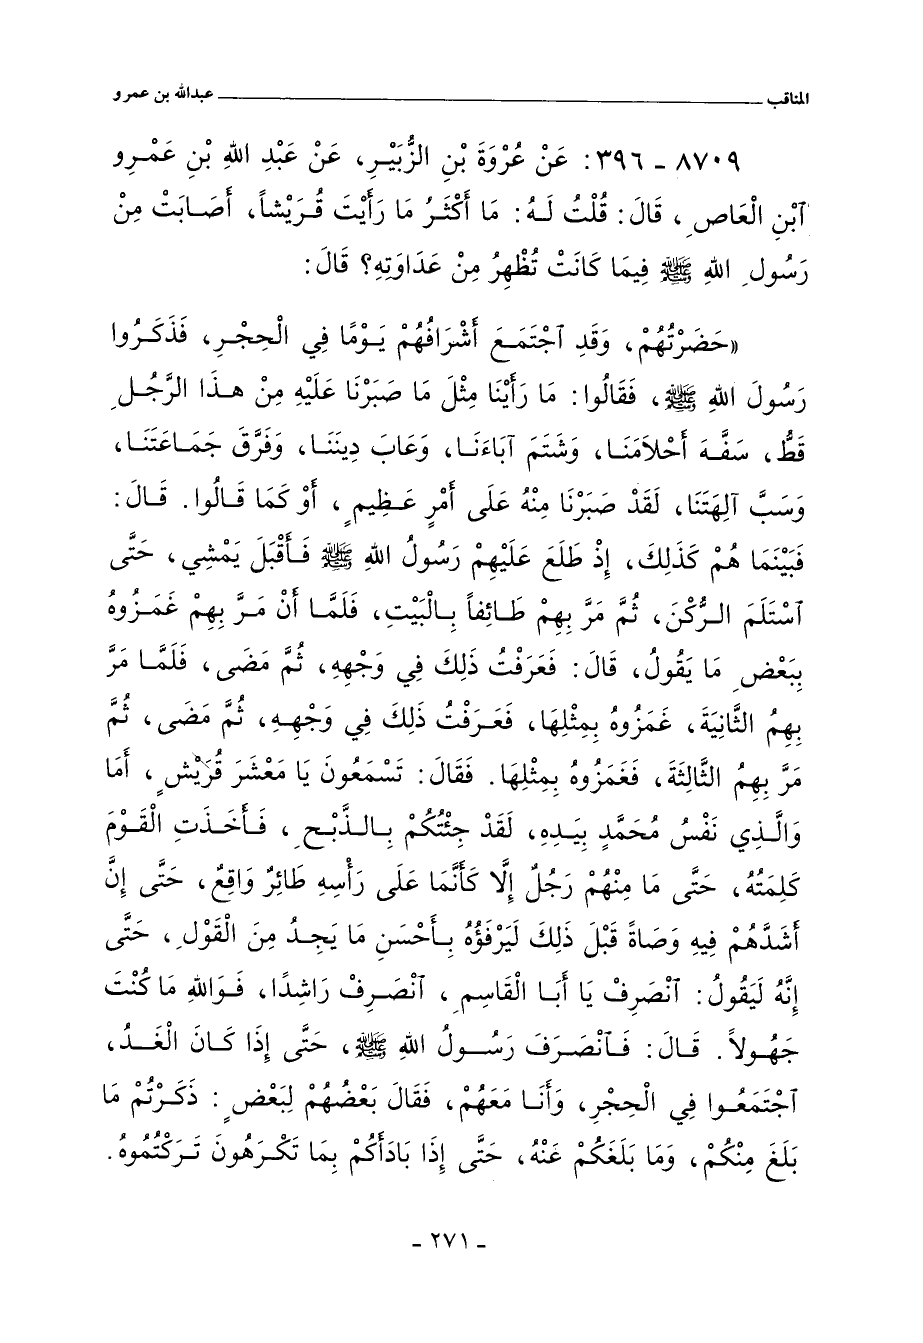 المناقب ـــــــــــــــــــــــــــــ عبدالله بن عمرو
٨٧٠٩ ـ ٣٩٦: عَنْ عُرْوَةَ بْنِ الزُّبَيْـرِ، عَنْ عَبْدِ اللهِ بْنِ عَمْـرِو
ٱبْنِ الْعَاصِ، قَالَ: قُلْتُ لَـهُ: مَا أَكْثَـرُ مَا رَأَيْتَ قُـرَيْشاً، أَصَـابَتْ مِنْ
رَسُولِ اللهِ ﷺ فِيمَا كَانَتْ تُظْهِرُ مِنْ عَدَاوَتِهِ؟ قَالَ:
«حَضَرْتُهُمْ، وَقَدِ ٱجْتَمَـعَ أَشْرَافُهُمْ يَـوْمًا فِي الْحِجْـرِ، فَذَكَـرُوا
رَسُولَ اللهِ ﷺ، فَقَالُوا: مَا رَأَيْنَا مِثْلَ مَا صَبَرْنَا عَلَيْهِ مِنْ هٰـذَا الرَّجُلِ
قَطُّ، سَفَّـهَ أَحْلَامَنَـا، وَشَتَمَ آبَاءَنَـا، وَعَابَ دِينَنَـا، وَفَرَّقَ جَمَـاعَتَنَـا،
وَسَبَّ آلِهَتَنَا، لَقَدْ صَبَرْنَا مِنْهُ عَلَى أَمْرٍ عَـظِيمٍ، أَوْ كَمَا قَـالُوا. قَـالَ:
فَبَيْنَمَا هُمْ كَذٰلِكَ، إِذْ طَلَعَ عَلَيْهِمْ رَسُولُ اللهِ ﷺ فَـأَقْبَلَ يَمْشِي، حَتَّى
ٱسْتَلَمَ الـرُّكْنَ، ثُمَّ مَرَّ بِهِمْ طَـائِفاً بِـالْبَيْتِ، فَلَمَّـا أَنْ مَـرَّ بِهِمْ غَمَـزُوهُ
بِبَعْضِ مَا يَقُولُ، قَالَ: فَعَرَفْتُ ذٰلِكَ فِي وَجْهِهِ، ثُمَّ مَضَى، فَلَمَّـا مَرَّ
بِهِمُ الثَّانِيَةَ، غَمَزُوهُ بِمِثْلِهَا، فَعَـرَفْتُ ذٰلِكَ فِي وَجْهِـهِ، ثُمَّ مَضَى، ثُمَّ
مَرَّ بِهِمُ الثَّالِثَةَ، فَغَمَزُوهُ بِمِثْلِهَا. فَقَالَ: تَسْمَعُونَ يَا مَعْشَرَ قُرَيْشٍ، أَمَا
وَالَّـذِي نَفْسُ مُحَمَّدٍ بِيَـدِهِ، لَقَدْ جِئْتُكُمْ بِـالـذَّبْحِ، فَـأَخَـذَتِ الْقَوْمَ
كَلِمَتُهُ، حَتَّى مَا مِنْهُمْ رَجُلٌ إِلَّا كَأَنَّمَا عَلَى رَأْسِهِ طَائِرٌ وَاقِعٌ، حَتَّى إِنَّ
أَشَدَّهُمْ فِيهِ وَصَاةً قَبْلَ ذٰلِكَ لَيَرْفَؤُهُ بِـأَحْسَنِ مَا يَجِـدُ مِنَ الْقَوْلِ، حَتَّى
إِنَّهُ لَيَقُولُ: ٱنْصَرِفْ يَا أَبَـا الْقَاسِمِ، ٱنْصَـرِفْ رَاشِدًا، فَـوَاللهِ مَا كُنْتَ
جَهُـولاً. قَـالَ: فَـٱنْصَـرَفَ رَسُـولُ اللهِ ﷺ، حَتَّى إِذَا كَـانَ الْغَـدُ،
ٱجْتَمَعُـوا فِي الْحِجْرِ، وَأَنَـا مَعَهُمْ، فَقَالَ بَعْضُهُمْ لِبَعْضٍ: ذَكَـرْتُمْ مَا
بَلَغَ مِنْكُمْ، وَمَا بَلَغَكُمْ عَنْهُ، حَتَّى إِذَا بَادَأَكُمْ بِمَا تَكْرَهُونَ تَـرَكْتُمُوهُ.
ـ ٢٧١ ـ